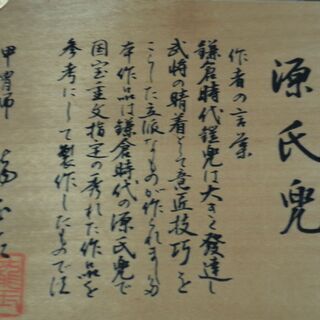 源氏兜
作者の言葉
鎌倉時代鎧兜は大きく発達し
武将の晴着として意匠技巧を
こらした立派なものが作られました
本作品は鎌倉時代の源氏兜で
国宝重文指定の秀れた作品を
参考にして製作したものです
甲冑師